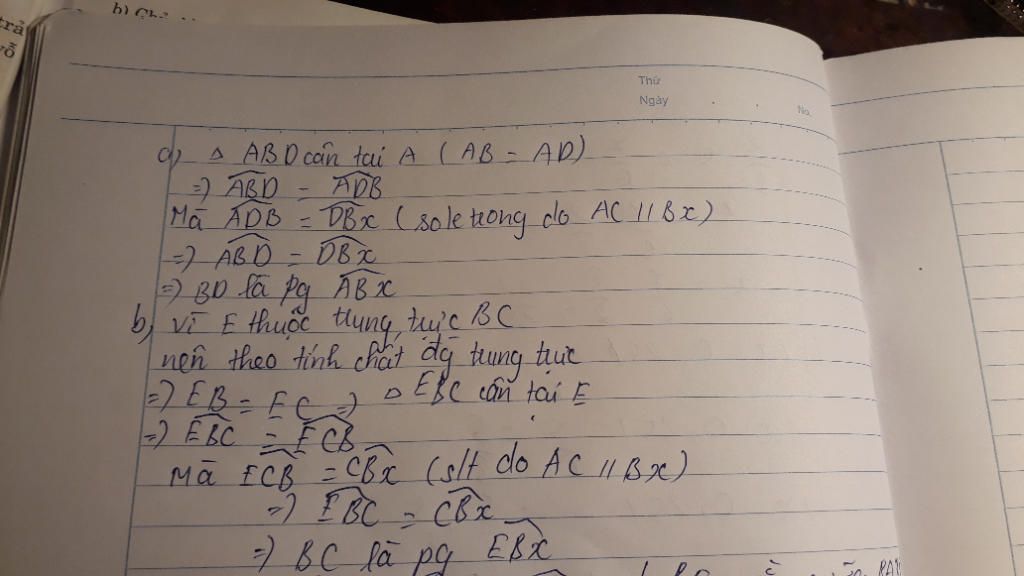 b)
trả
vỗ
Thứ
Ngày
No.
a) Δ ABD cân tại A ( AB = AD)
=) ABD = ADB
Mà ADB = DBx (so le trong do AC // Bx)
=) ABD = DBx
=) BD là pg ABx
b) Vì E thuộc trung trực BC
nên theo tính chất đg trung trực
=) EB = EC =) Δ EBC cân tại E
=) EBC = ECB
Mà ECB = CBx (slt do AC // Bx)
=) EBC = CBx
=) BC là pg EBx